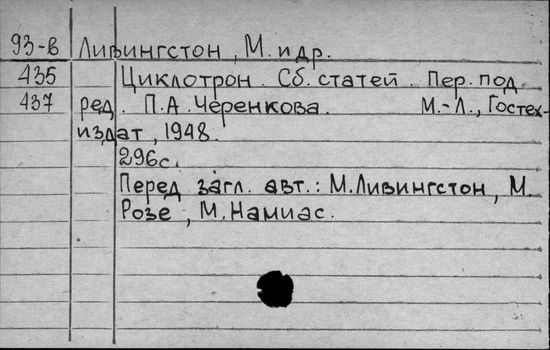 93-в Ливингстон, М. и др.
435 Циклотрон. Сб. статей. Пер. под
437 ред. П.А. Черенкова. М.-Л., Гостех-
издат, 1948.
296с.
Перед загл. авт.: М.Ливингстон, М.
Розе, М.Намиас.